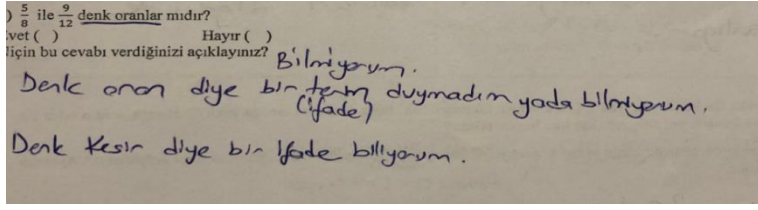 ) 5/8 ile 9/12 denk oranlar mıdır?
vet ( ) Hayır ( )
için bu cevabı verdiğinizi açıklayınız? Bilmiyorum.
Denk oran diye bir terim duymadım yada bilmiyorum.
(ifade)
Denk Kesir diye bir ifade biliyorum.